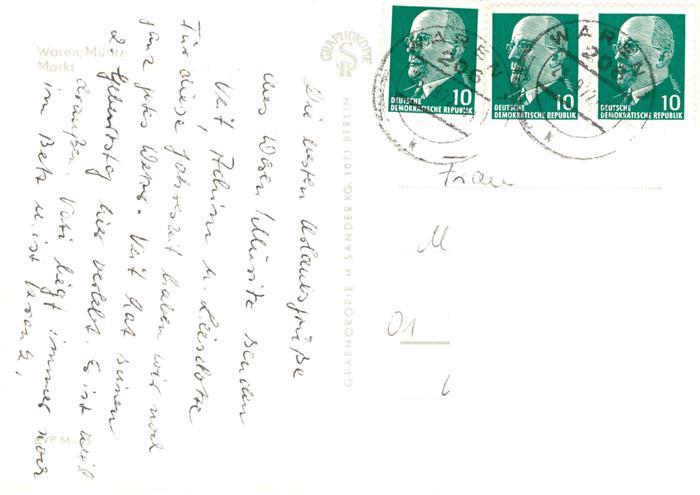 Waren/Müritz
Markt
Die besten Urlaubsgrüße
aus Waren/Müritz senden
Veit, Achim u. Lieselotte
Für diese Jahreszeit haben wir noch
ganz gutes Wetter. Veit hat seinen
2. Geburtstag hier verlebt. Es ist
draußen. Vati liegt immer noch
im Bett u. ist krank.
GRAPHOKOPIE
GRAPHOKOPIE H. SANDER KG, 1071 BERLIN
10
DEUTSCHE
DEMOKRATISCHE REPUBLIK
10
DEUTSCHE
DEMOKRATISCHE REPUBLIK
10
DEUTSCHE
DEMOKRATISCHE REPUBLIK
WAREN
206
WAREN
206
Frau
M
01